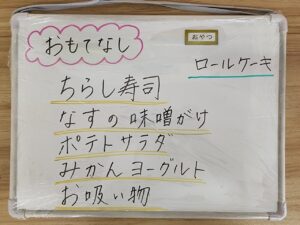 おもてなし
おやつ
ロールケーキ
ちらし寿司
なすの味噌がけ
ポテトサラダ
みかんヨーグルト
お吸い物